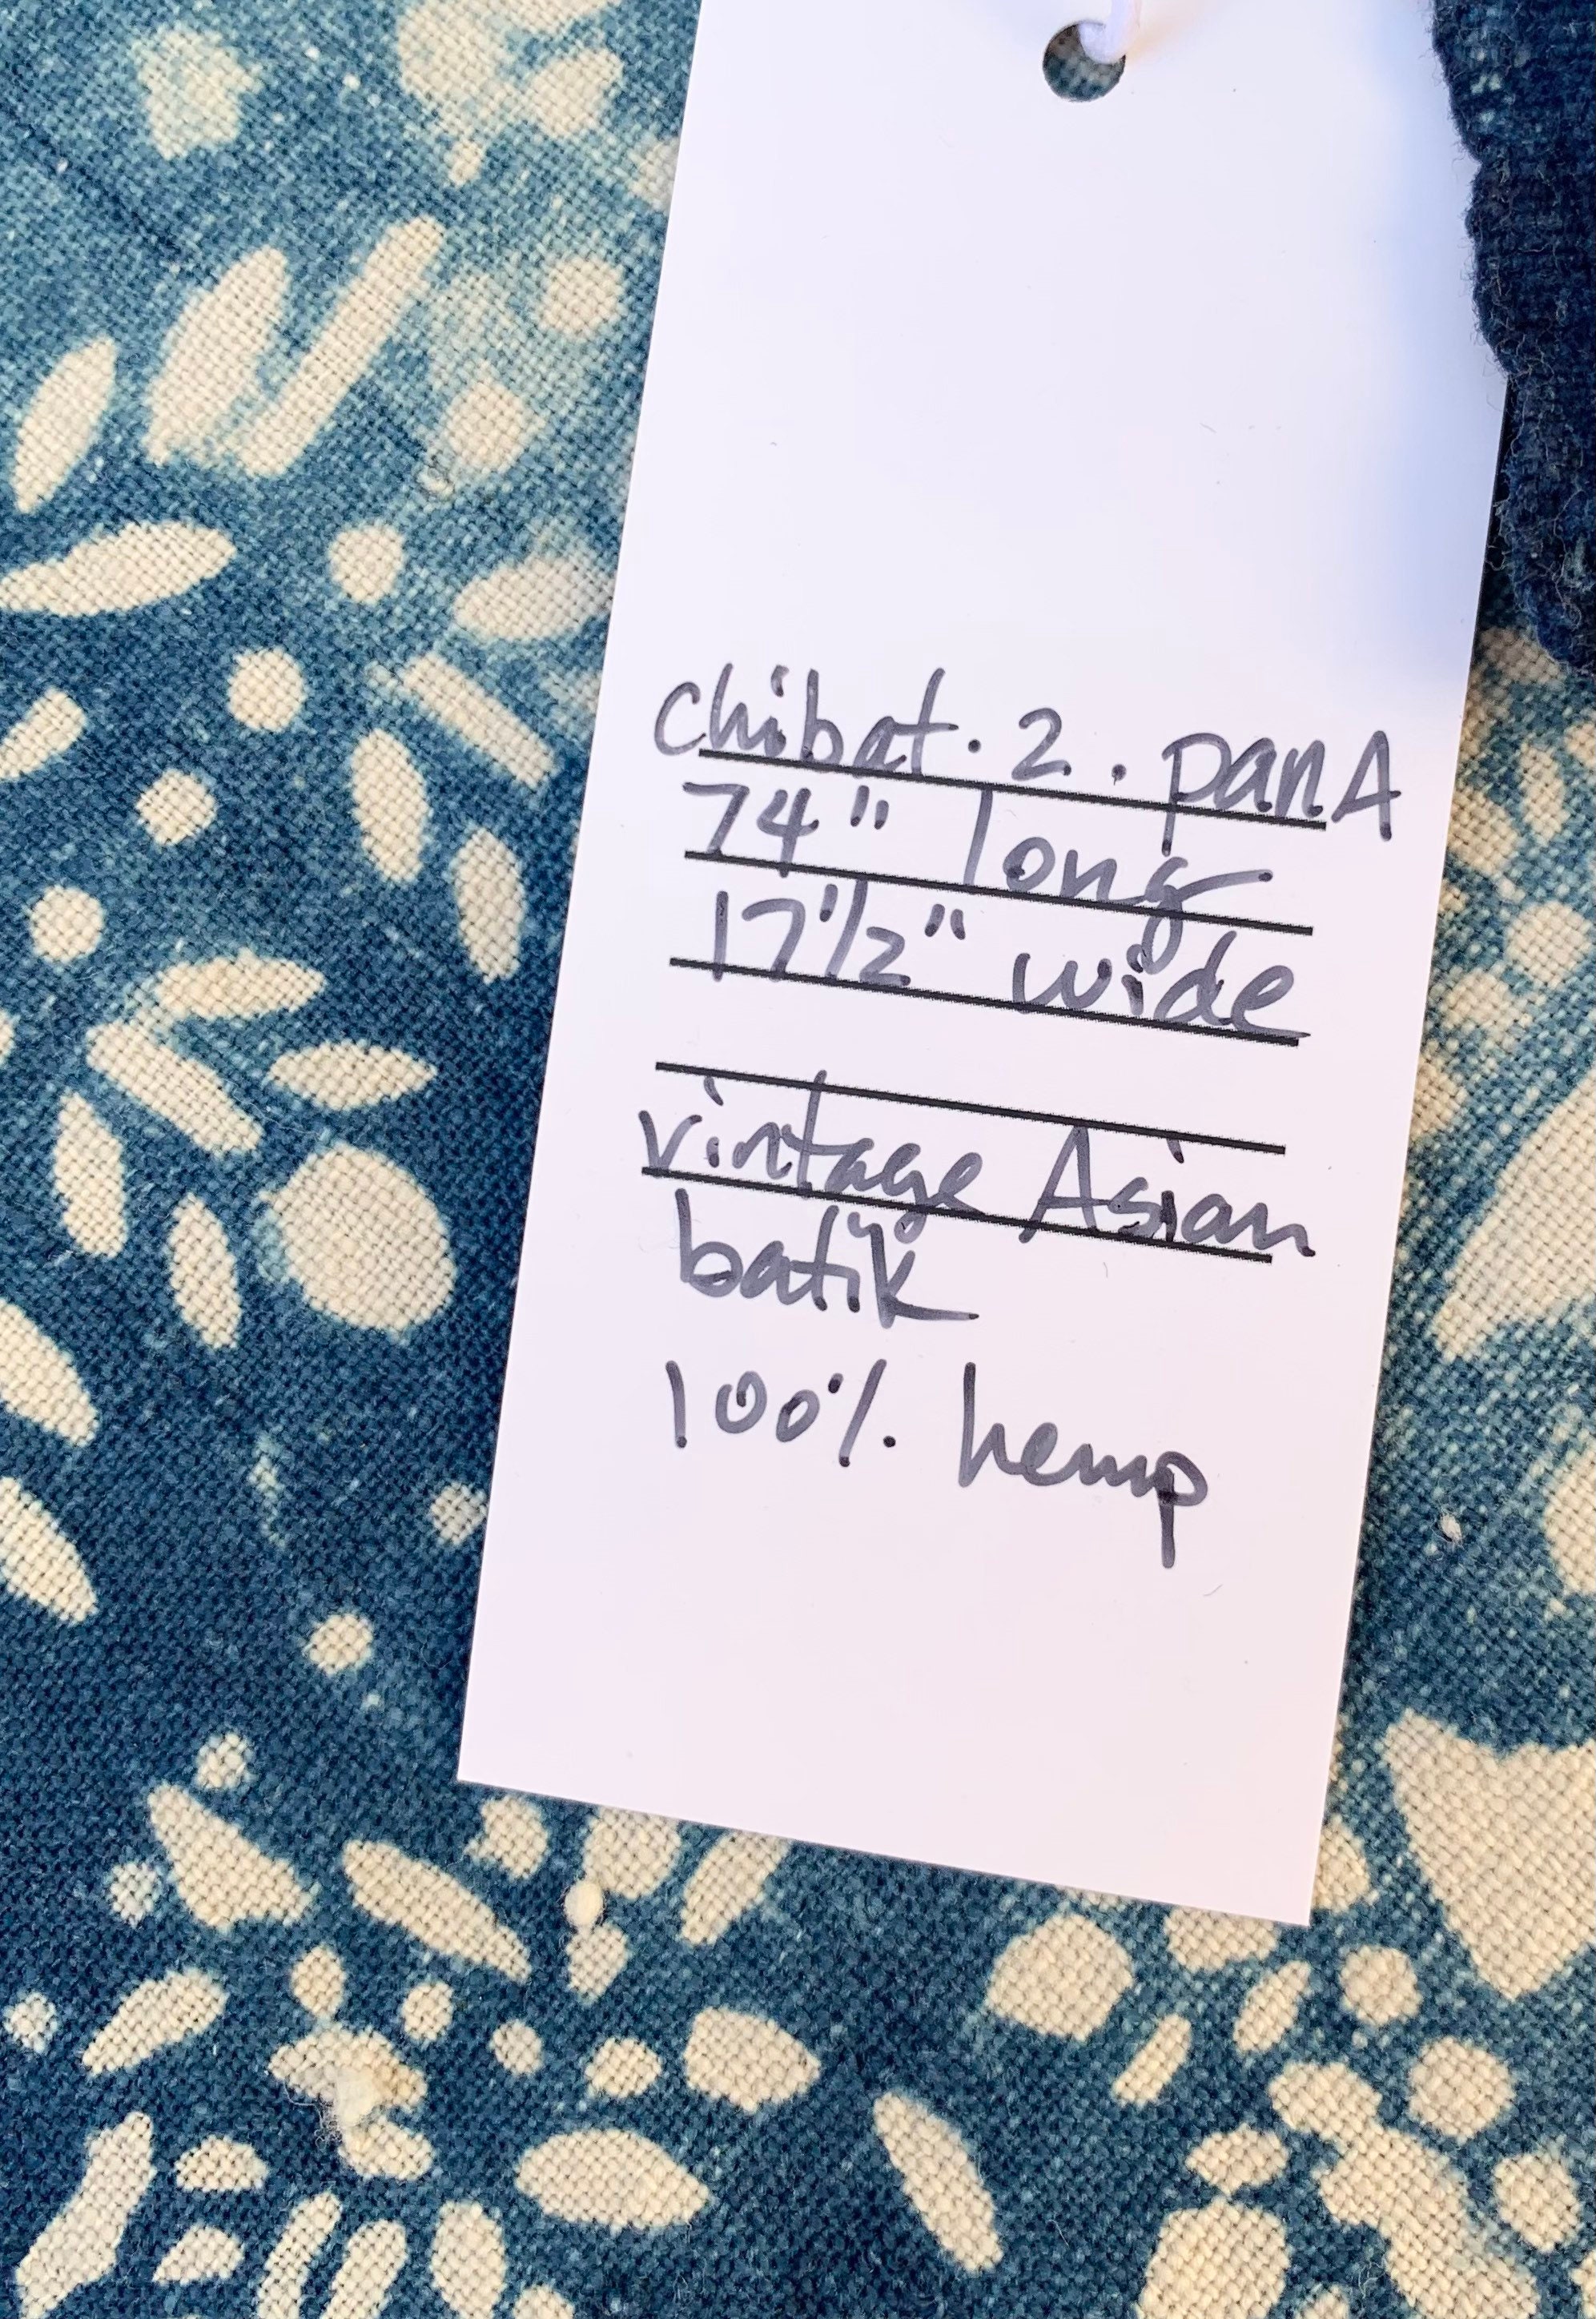 chibat. 2. panA
74" long
17 1/2" wide
vintage Asian
batik
100% hemp